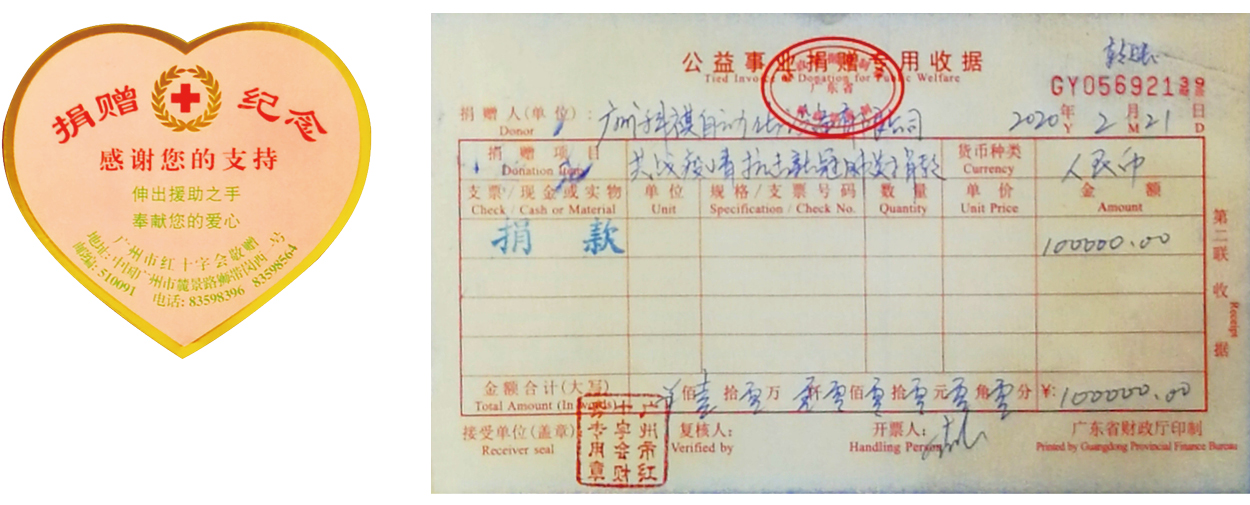 捐赠纪念
感谢您的支持
伸出援助之手
奉献您的爱心
广州市红十字会敬赠
地址:中国广州市麓景路狮带岗西一号
邮编:510091 电话:83598396 83598564
公益事业捐赠专用收据
Tied Invoice of Donation for Public Welfare
广东省
GY05692139
捐赠人(单位):广州科祺自动化设备有限公司 2020年2月21日
Donor Y M D
捐赠项目 共战疫情抗击新冠肺炎捐款 货币种类 人民币
Donation Item Currency
支票/现金或实物 单位 规格/支票号码 数量 单价 金额
Check / Cash or Material Unit Specification / Check No. Quantity Unit Price Amount
捐款 100000.00
第二联 收据
Receipt
金额合计(大写) 佰壹拾零万零仟零佰零拾零元零角零分 ¥:100000.00
Total Amount (In words)
接受单位(盖章) 复核人: 开票人: 广东省财政厅印制
Receiver seal Verified by Handling Person Printed by Guangdong Provincial Finance Bureau
广州市红十字会财务专用章